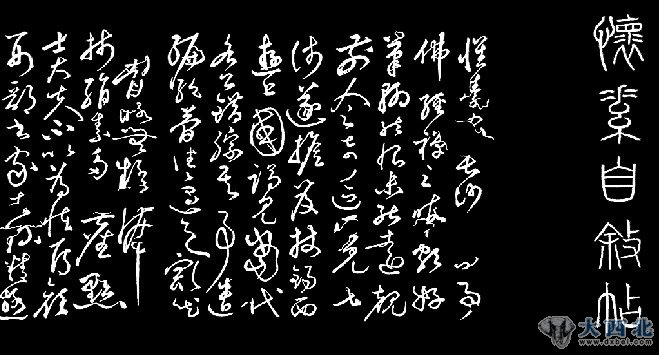 懷素自敘帖
懷素家長沙幼而事
佛經禪之暇頗好
筆翰然恨未能遠覩
前人之奇迹所見甚
淺遂擔笈杖錫西
遊上國謁見當代
名公錯綜其事遺
編絕簡往往遇之豁然
心胸略無疑滯魚
牋絹素多所塵點
士大夫不以為怪焉顏
刑部書家者流精極
大西北